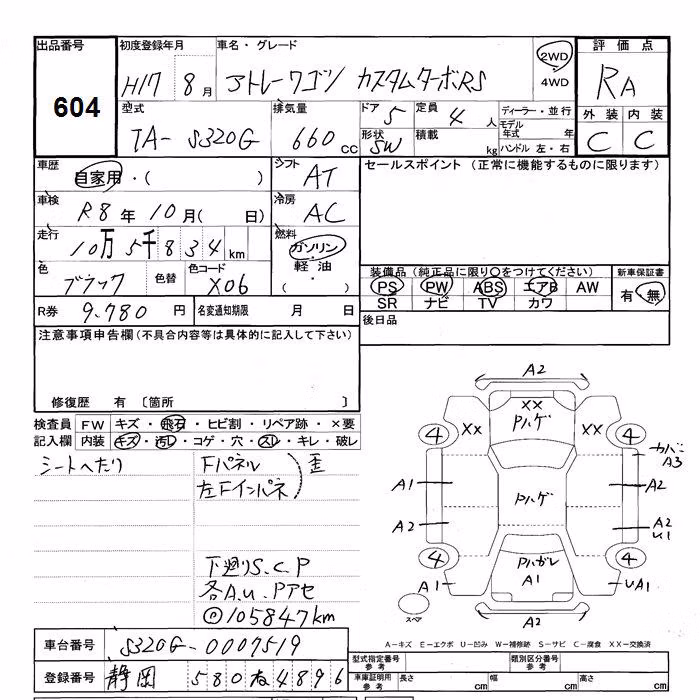 出品番号
604
初度登録年月
H17 8月
車名・グレード
アトレーワゴン カスタムターボRS
2WD
4WD
評価点
RA
外装 内装
C C
型式
TA- S320G
排気量
660 cc
ドア 5
定員 4 人
形状 SW
積載 kg
ディーラー・並行
モデル年式 年
ハンドル 左・右
車歴
自家用・( )
シフト
AT
車検
R8年 10月( 日)
冷房
AC
走行
10万 5千 8 3 4 km
燃料
ガソリン
軽油
( ・ )
色
ブラック
色替
色コード
X06
R券 9,780 円
名変通知期限 月 日
セールスポイント (正常に機能するものに限ります)
装備品 (純正品に限り○をつけてください)
PS PW ABS エアB AW
SR ナビ TV カワ
新車保証書
有・無
後日品
注意事項申告欄(不具合内容等は具体的に記入して下さい)
修復歴 有 〔箇所 〕
検査員記入欄
FW キズ・飛石・ヒビ割・リペア跡・×要
内装 キズ・汚レ・コゲ・穴・スレ・キレ・破レ
シートへたり
Fパネル
左Fインパネ
歪
下廻りS.C.P
各A.U.Pアセ
Ⓟ105847km
A2
XX
Pハゲ
XX
XX
4
4
カバニ
A3
A1
A2
Pハゲ
A2
A2
U1
4
4
Pハガレ
A1
A1
UA1
スペア
A2
A-キズ E-エクボ U-凹み W-補修跡 S-サビ C-腐食 XX-交換済
車台番号
S320G-0007519
登録番号
静岡 580 ね 4896
型式指定番号 参考
類別区分番号 参考
車庫証明用 参考
長さ cm
幅 cm
高さ cm